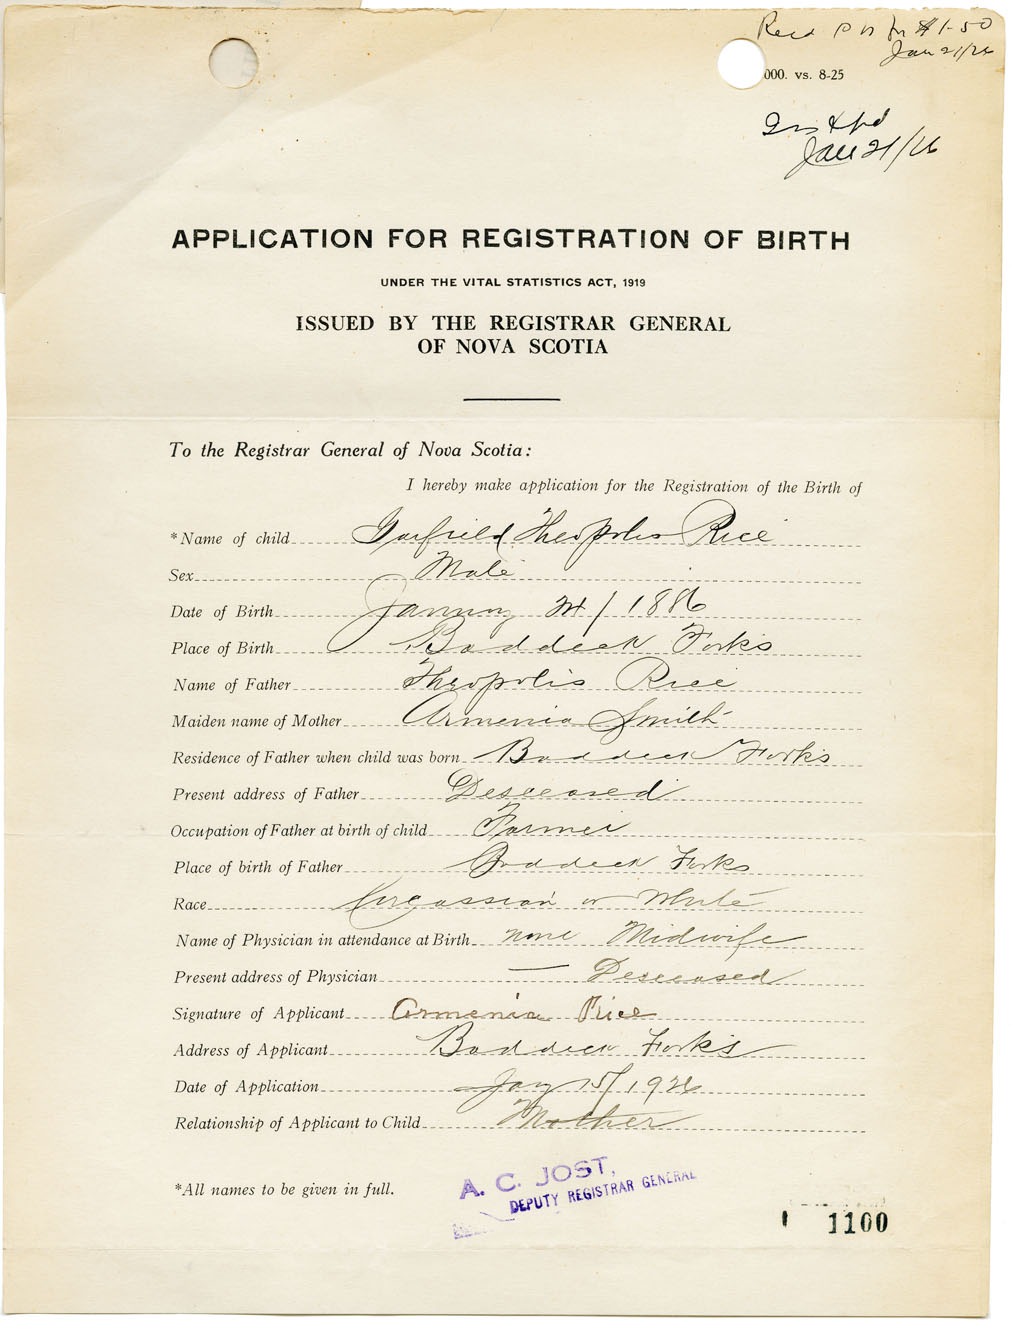 Recd P N for $1.50
Jan 21/26
000. vs. 8-25
Jan 21/26
APPLICATION FOR REGISTRATION OF BIRTH
UNDER THE VITAL STATISTICS ACT, 1919
ISSUED BY THE REGISTRAR GENERAL
OF NOVA SCOTIA
To the Registrar General of Nova Scotia:
I hereby make application for the Registration of the Birth of
*Name of child Garfield Theopolis Rice
Sex Male
Date of Birth January 24/1886
Place of Birth Baddeck Forks
Name of Father Theopolis Rice
Maiden name of Mother Armenia Smith
Residence of Father when child was born Baddeck Forks
Present address of Father Desceased
Occupation of Father at birth of child Farmer
Place of birth of Father Baddeck Forks
Race Circassian or White
Name of Physician in attendance at Birth none Midwife
Present address of Physician — Desceased
Signature of Applicant Armenia Rice
Address of Applicant Baddeck Forks
Date of Application Jany 15/1926
Relationship of Applicant to Child Mother
*All names to be given in full.
A. C. JOST,
DEPUTY REGISTRAR GENERAL
1100